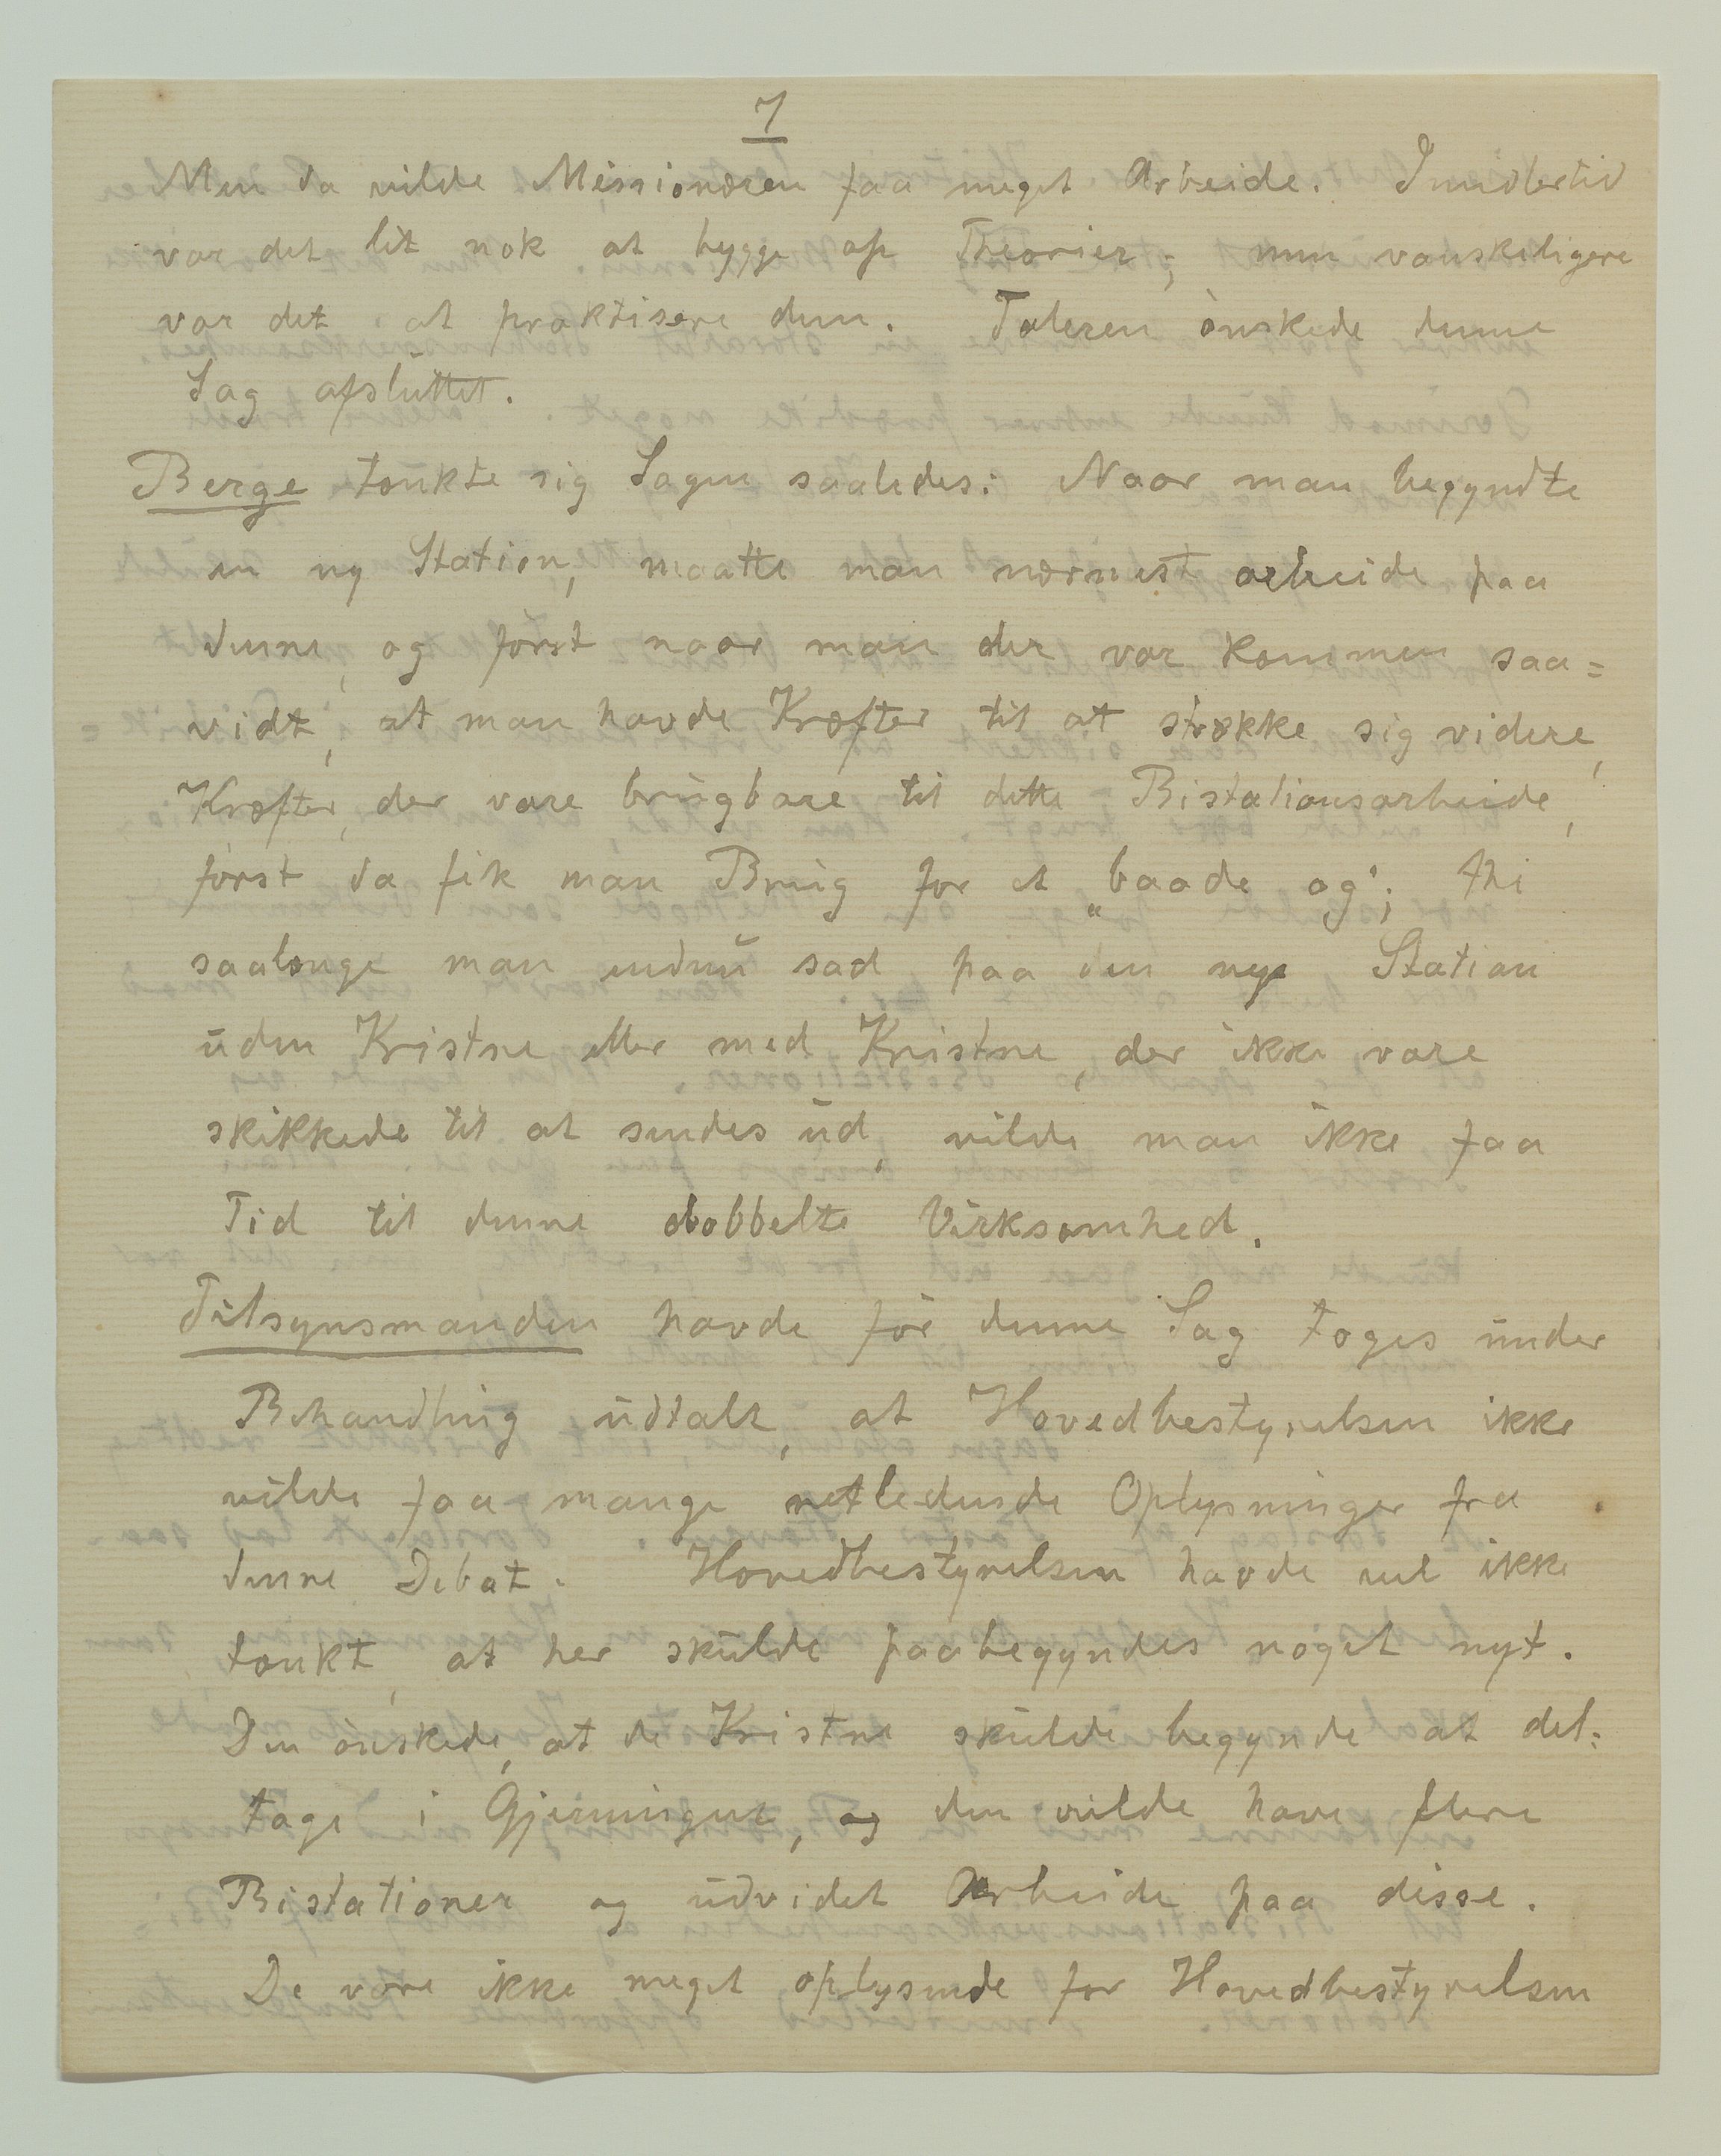 7
Men da vilde Missionæren faa meget Arbeide. Imidlertid
var det let nok at bygge op Theorier; men vanskeligere
var det at praktisere dem. Taleren ønskede denne
Sag afsluttet.
Berge tænkte sig Sagen saaledes: Naar man begyndte
en ny Station, maatte man nærmest arbeide paa
denne, og først naar man der var kommen saa=
vidt, at man havde Kræfter til at strække sig videre,
Kræfter, der vare brugbare til dette Bistationsarbeide,
først da fik man Brug for et „baade og“; thi
saalænge man endnu sad paa den nye Station
uden Kristne eller med Kristne, der ikke vare
skikkede til at sendes ud, vilde man ikke faa
Tid til denne dobbelte Virksomhed.
Tilsynsmanden havde før denne Sag toges under
Behandling udtalt, at Hovedbestyrelsen ikke
vilde faa mange vetledende Oplysninger fra
denne Debat. Hovedbestyrelsen havde vel ikke
tænkt, at her skulde paabegyndes noget nyt.
Den ønskede, at de Kristne skulde begynde at del=
tage i Gjerningen, og den vilde have flere
Bistationer og udvidet Arbeide paa disse.
De vare ikke meget oplysende for Hovedbestyrelsen